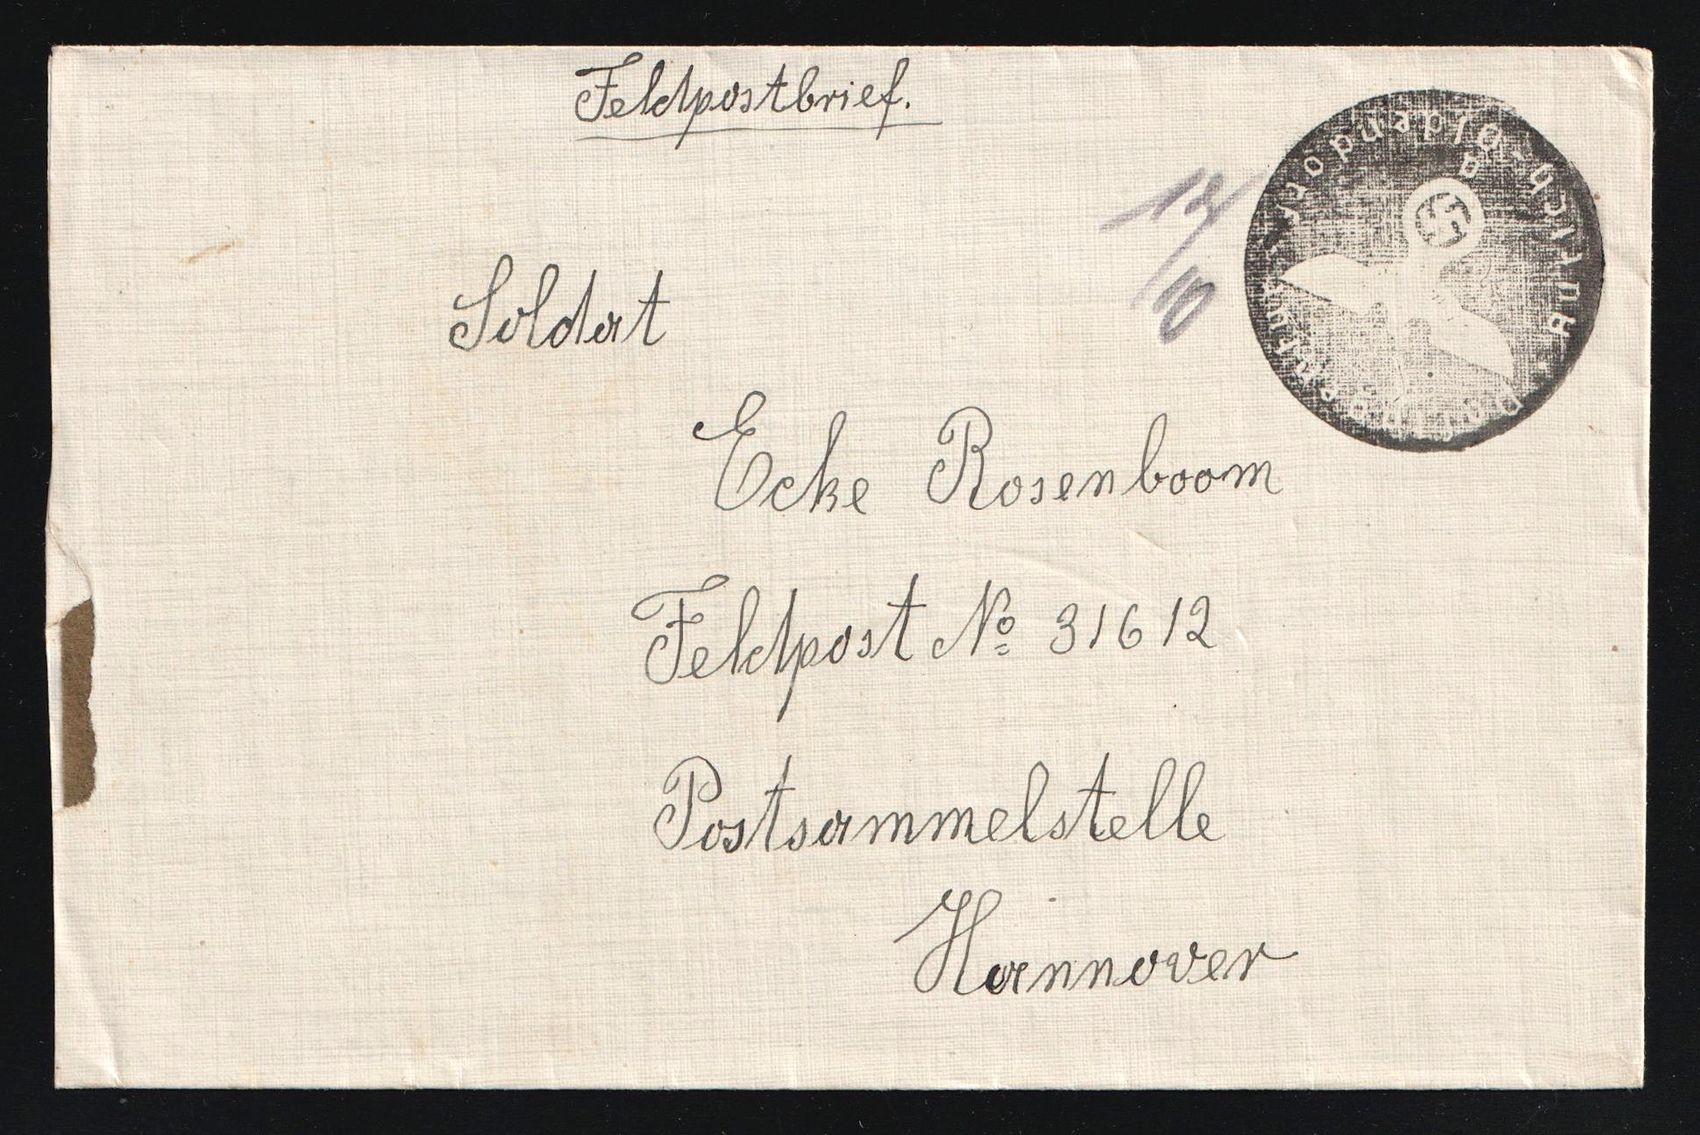 Feldpostbrief.
12/10
Soldat
Ecke Rosenboom
Feldpost No 31612
Postsammelstelle
Hannover